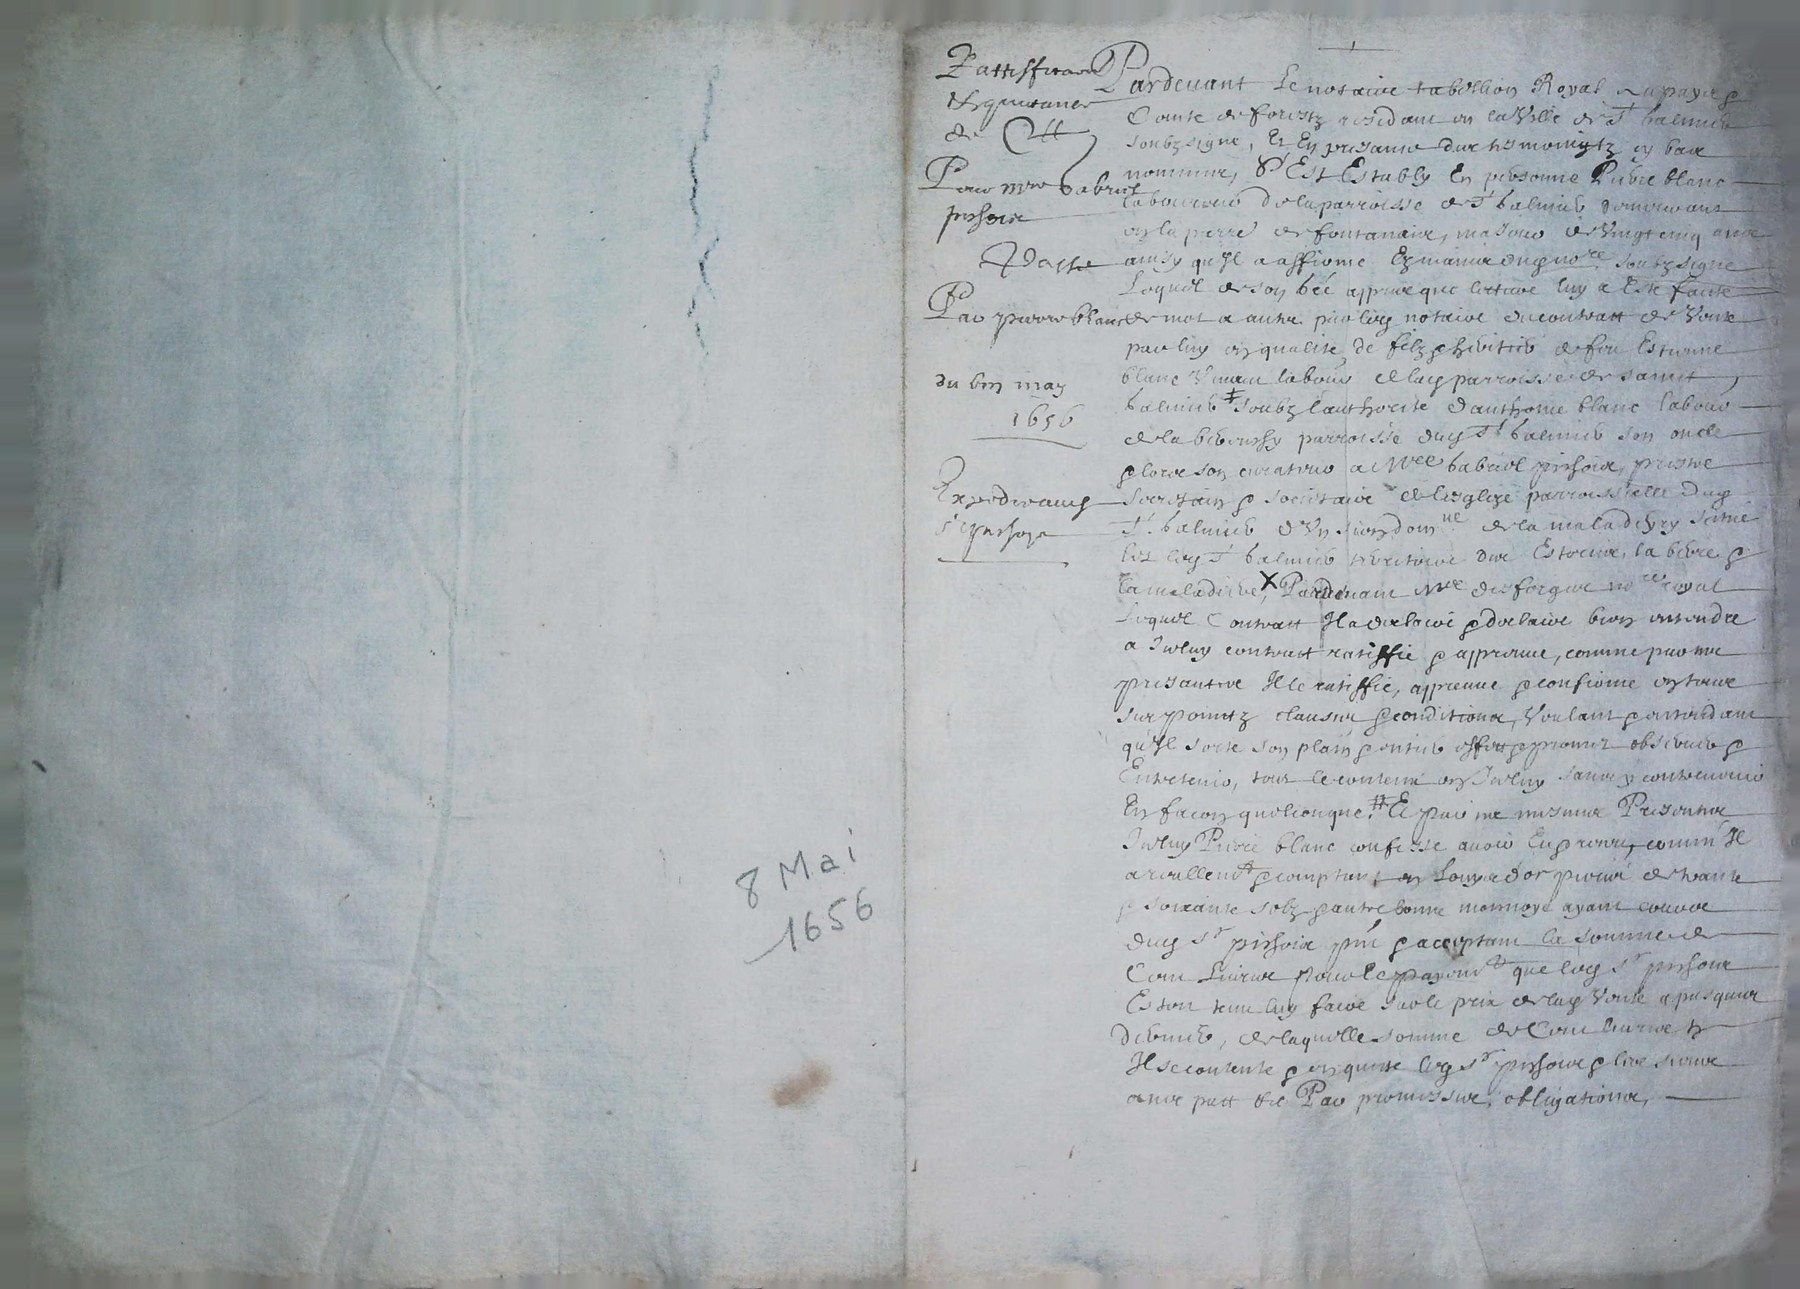 8 Mai
1656
Rattiffication
& quictance
de Ctt
Pour Mre Gabriel
pishoir
Passe
Par pierre blanc
du bm may
1656
Expedie aud
sr pishoir
Pardevant Le notaire tabellion Royal au pays &
Comte de forestz residant en la Ville de St Galmier
soubzsigne, Et En presance des tesmoingtz cy bas
nommes, S'Est Estably En personne Pierre blanc
laboureur de la parroisse de St Galmier demeurant
en la de fontanaire, majeur de Vingt cinq ans
ainsy qu'Il a affirme soubzsigne
Lequel de son gré appres que lecture luy a Este faicte
de mot a autre par led notaire du contratt de Vente
par luy en qualite de filz & heritier de feu Estienne
blanc Vivant labour de lad parroisse de sainct
Galmier soubz l'authorite d'anthoine blanc labour
de la parroisse dud St Galmier son oncle
& lors son curateur a Mre Gabriel pishoir, prestre
& societaire de l'esglize parroissielle dud
St Galmier d'Un sien dom ne de la maladiery scitue
lez led St Galmier
la maladiere, X Pardevant Mre desforges no re royal
Lequel Contratt Il a declaire & declaire bien entendre
a Iceluy contratt ratiffie & appreuve, comme par ces
presantes Il le ratiffie, appreuve & confirme en tous
ses pointz clauses & conditions, Voulant & entendant
qu'Il sorte son plain & entier effect & promet observer &
Entretenir, tout le contenu en Iceluy sans y contrevenir
En facon quelconque, # Et par ces mesmes Presentes
Iceluy Pierre blanc confesse avoir Eu & receu, comm'Il
a reallemt & comptant en Louys d'or pieces de trante
& soixante solz & autre bonne monnoye ayant cours
dud Sr pishoir pnt & acceptant la somme de
Cent Livres pour le payemt que led Sr pishoir
Estoit tenu luy faire sur le prix de lad Vente a pasques
dernier, de laquelle somme de Cent livres tz
Il se contente & en quitte led Sr pishoir & les siens
avec pact &c Par promesses, obligations,